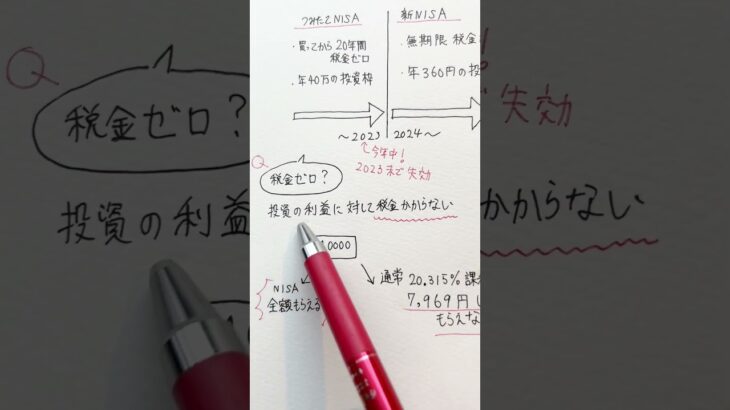 つみたてNISA
・買ってから20年間
税金ゼロ
・年40万の投資枠
〜2023
↑今年中!
2023まで失効
新NISA
・無期限 税金
・年360円の投
2024〜
Q
税金ゼロ?
投資の利益に対して税金かからない
0000
NISA
全額もらえる
通常 20.315%課
7,969円し
もらえな